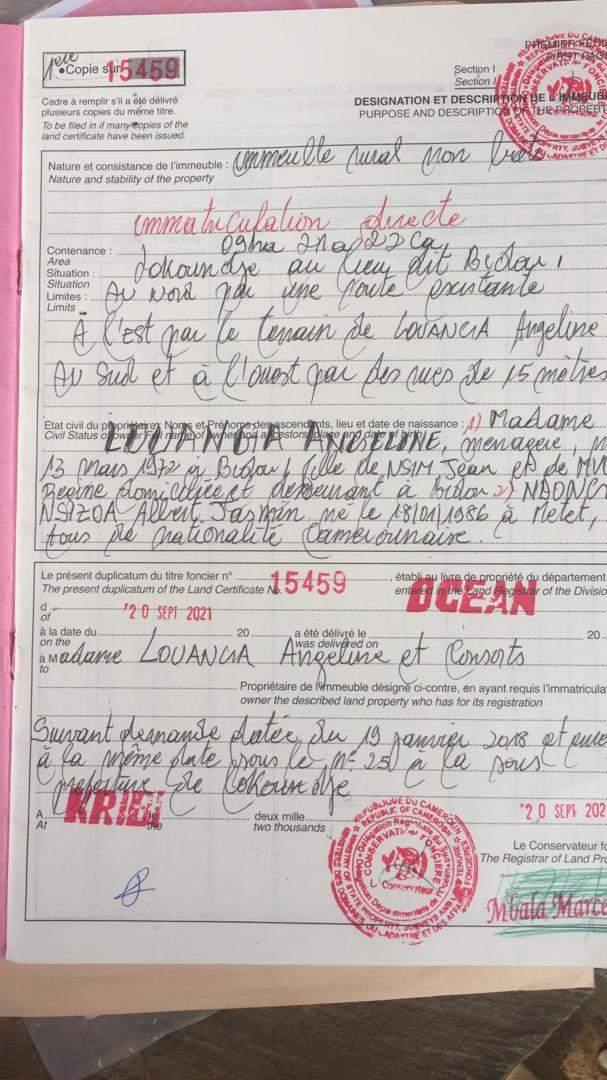 1ère
•Copie sur 15459
Cadre à remplir s'il a été délivré
plusieurs copies du même titre.
To be filed in if many copies of the
land certificate have been issued.
Section I
Section I
PREMIER FEUI
FIRST PAG
DESIGNATION ET DESCRIPTION DE L'IMMEUB
PURPOSE AND DESCRIPTION OF THE PROPERT
Nature et consistance de l'immeuble : immeuble rural non bati
Nature and stability of the property
immatriculation directe
Contenance : 09ha 21a 22 Ca
Area
Situation : Lokoundje au lieu dit Bidou I
Situation
Limites : Au Nord par une route existante
Limits
A l'Est par le terrain de LOUANGIA Angeline
Au Sud et à l'ouest par des rues de 15 mètres
Etat civil du propriétaire, Noms et Prénoms des ascendants, lieu et date de naissance : 1) Madame
Civil Status of owner Full name of owner and ancestors, place and date of birth
LOUANGIA ANGELINE, menagère, n
13 Mars 1972 à Bidou I fille de NSIM Jean et de
Regine domiciliée et demeurant à Bidou 2) NDONG
NSIZOA Albert Jasmin né le 18/01/1986 à Metet,
tous de nationalité Camerounaise.
Le présent duplicatum du titre foncier n° 15459, établi au livre de propriété du département
The present duplicatum of the Land Certificate No. entered in the Land Registrar of the Divisio
d OCEAN
of
'20 SEPT 2021
à la date du 20 a été délivré le 20
on the was delivered on
à Madame LOUANGIA Angeline et Consorts
to
Propriétaire de l'immeuble désigné ci-contre, en ayant requis l'immatricula
owner the described land property who has for its registration
Suivant demande datée du 19 janvier 2018 et
à la même date sous le n° 250 à la sous
préfecture de Lokoundje
A KRIBI le deux mille
At the two thousands
'20 SEPT 202
REPUBLIQUE DU CAMEROUN
REPUBLIC OF CAMEROON
CONSERVATION FONCIERE
Le Conservateur
Le Conservateur fo
The Registrar of Land Pro
Mbala Marce